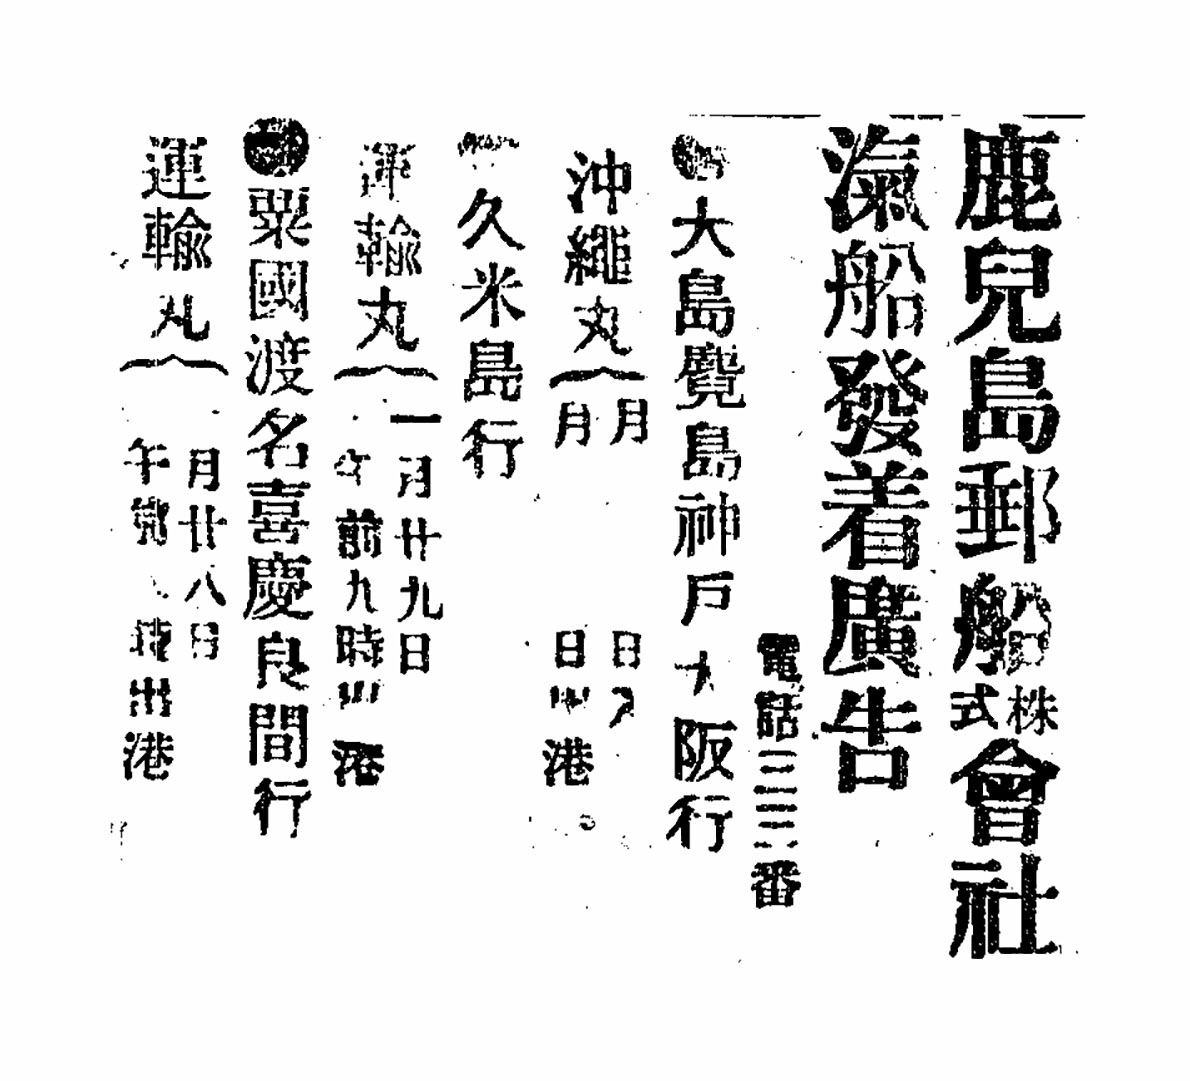 鹿兒島郵船株式會社
滊船發着廣告
電話三三番
大島鹿兒島神戸大阪行
沖繩丸
月 日入
月 日出港
久米島行
運輸丸
一月廿九日
午前九時出港
粟國渡名喜慶良間行
運輸丸
月廿八日
午 時出港